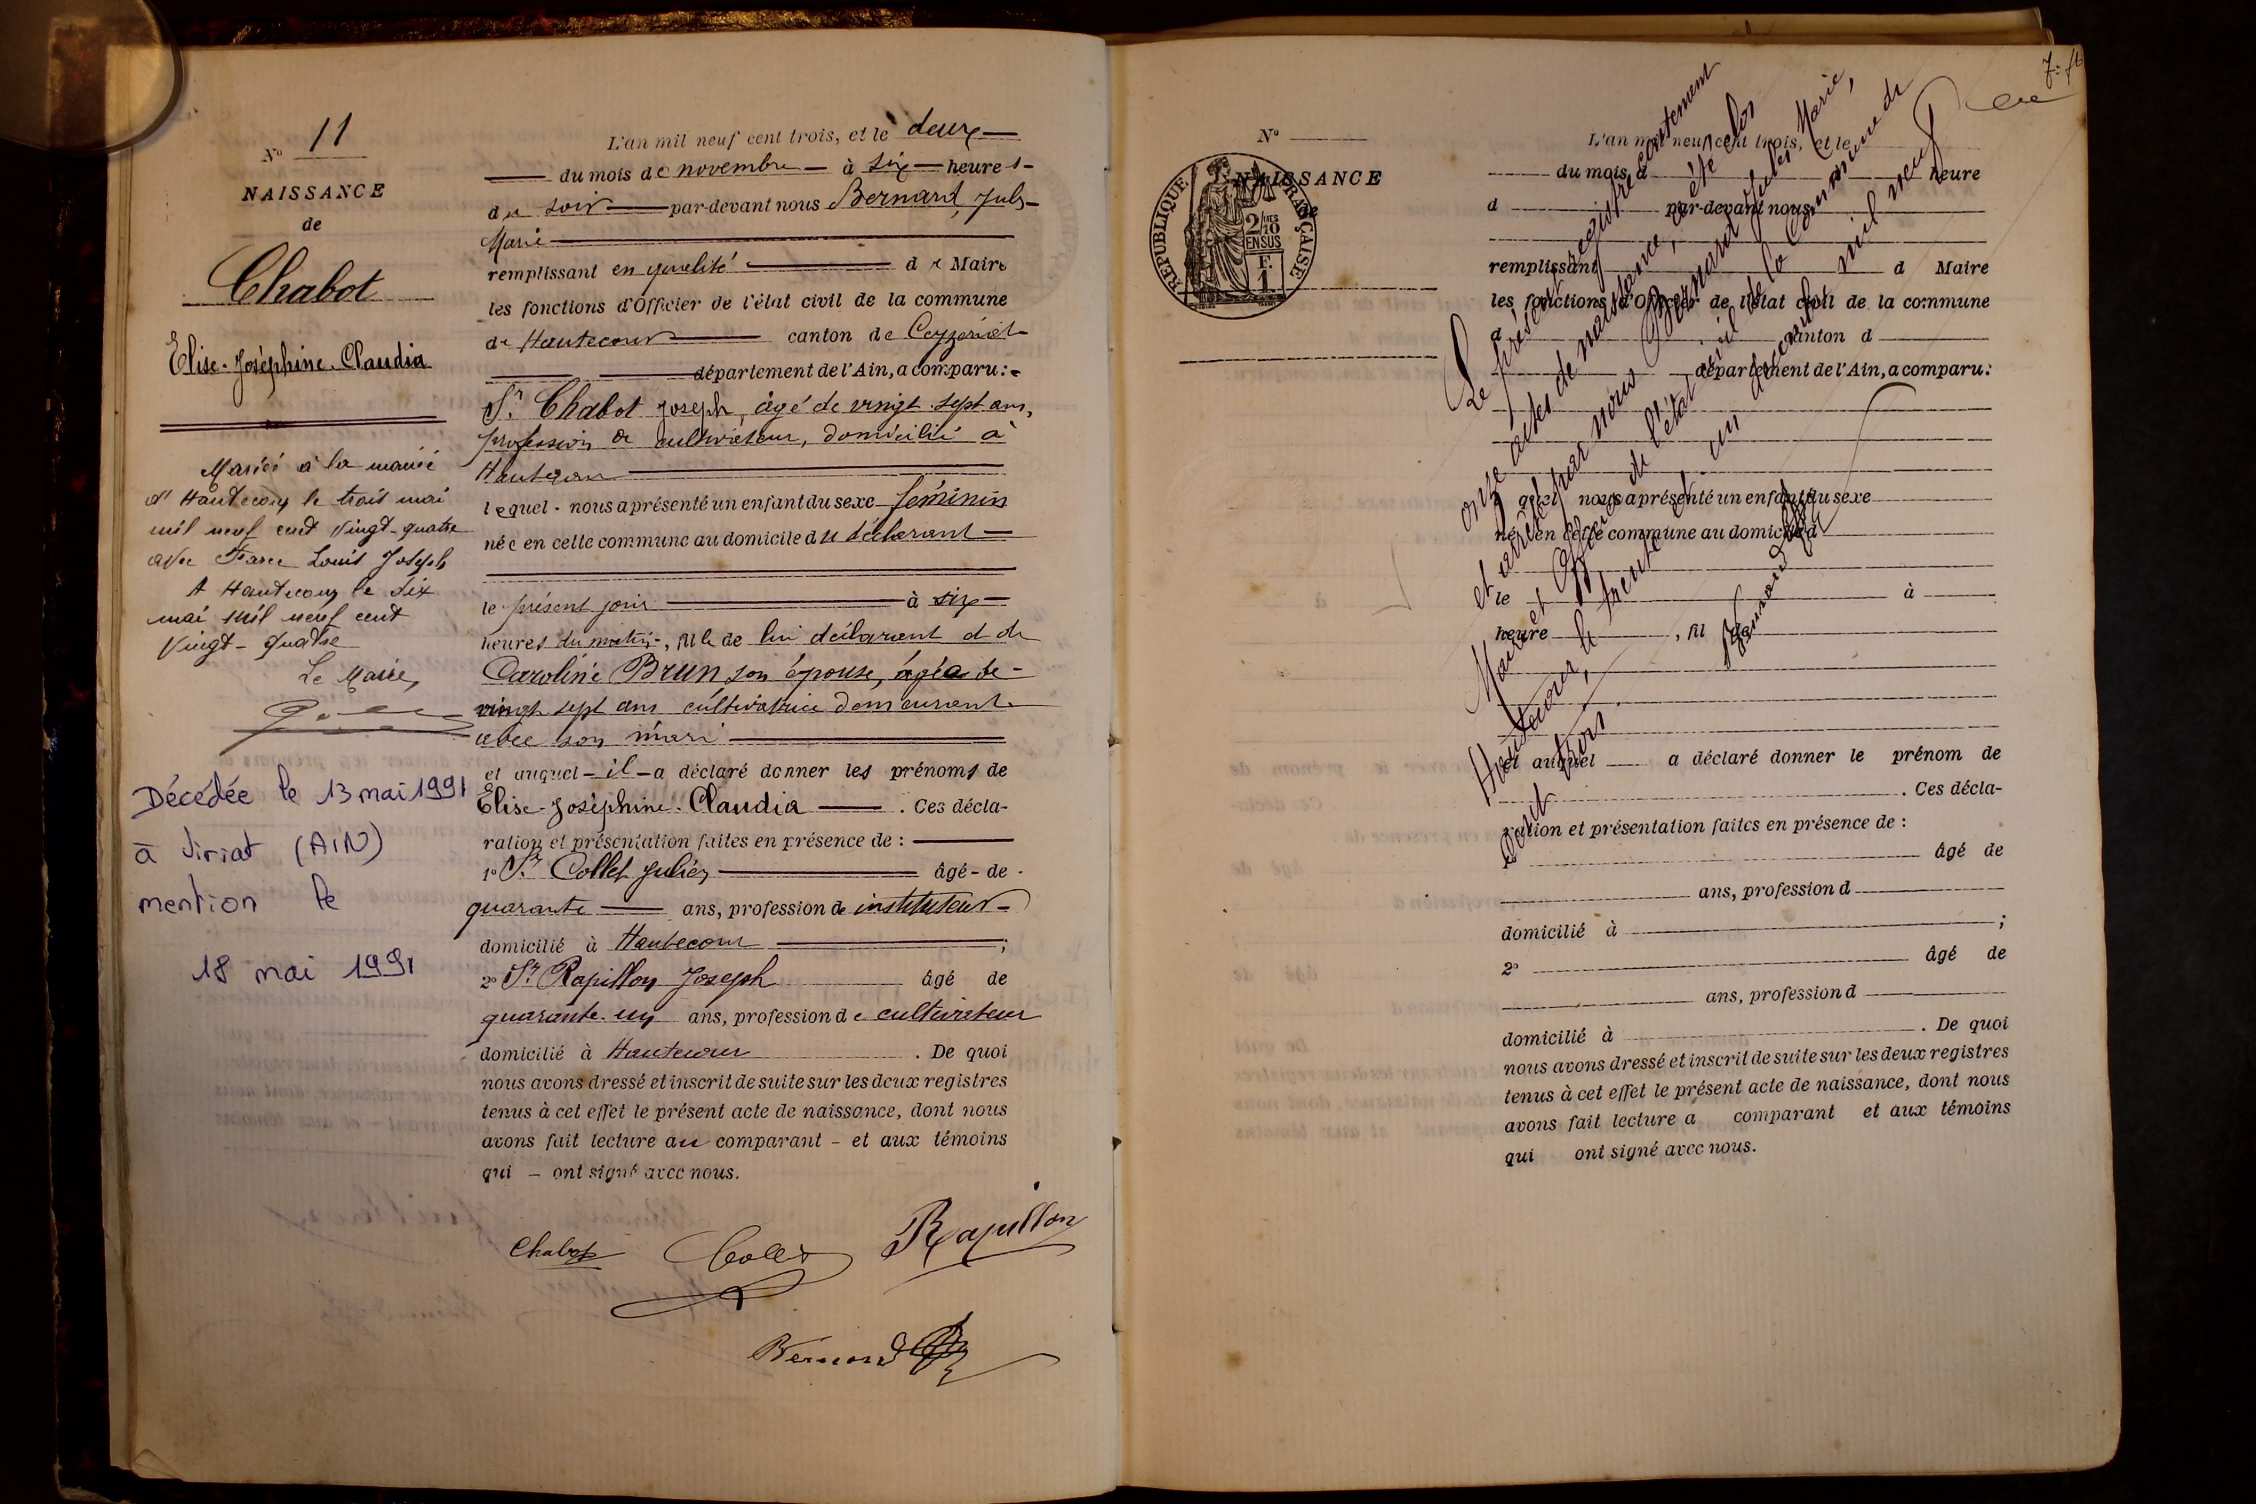 N° 11
NAISSANCE
de
Chabot
Elise-Joséphine-Claudia
Mariée à la mairie
d'Hautecour le trois mai
mil neuf cent vingt-quatre
avec Louis Joseph
A Hautecour le six
mai mil neuf cent
vingt-quatre
Le Maire,
Décédée le 13 mai 1991
à Viriat (AIN)
mention le
18 mai 1991
L'an mil neuf cent trois, et le deux
du mois de novembre à six heures
du soir par-devant nous Bernard, Jules
Marie
remplissant en qualité de Maire
les fonctions d'Officier de l'état civil de la commune
de Hautecour canton de Ceyzériat
département de l'Ain, a comparu :
Sr. Chabot Joseph, âgé de vingt-sept ans,
profession de cultivateur, domicilié à
Hautecour
lequel nous a présenté un enfant du sexe féminin
née en cette commune au domicile du déclarant
le présent jour à six
heures du matin, fille de lui déclarant et de
Caroline Brun son épouse, âgée de
vingt sept ans cultivatrice demeurant
avec son mari
et auquel il a déclaré donner les prénoms de
Elise-Joséphine-Claudia . Ces décla-
ration et présentation faites en présence de :
1° Sr. Collet Julien âgé de
quarante ans, profession de instituteur
domicilié à Hautecour ;
2° Sr. Rapillon Joseph âgé de
quarante-un ans, profession de cultivateur
domicilié à Hautecour . De quoi
nous avons dressé et inscrit de suite sur les deux registres
tenus à cet effet le présent acte de naissance, dont nous
avons fait lecture au comparant et aux témoins
qui ont signé avec nous.
Chabot Collet Rapillon
Bernard
N°
NAISSANCE
de
REPUBLIQUE FRANÇAISE
2/10 EN SUS
F. 1
L'an mil neuf cent trois, et le
du mois d heure
d par-devant nous
remplissant d Maire
les fonctions d'Officier de l'état civil de la commune
d canton d
département de l'Ain, a comparu :
quel nous a présenté un enfant du sexe
né en cette commune au domicile d
le à
heure , fil de
et auquel a déclaré donner le prénom de
. Ces décla-
ration et présentation faites en présence de :
1° âgé de
ans, profession d
domicilié à ;
2° âgé de
ans, profession d
domicilié à . De quoi
nous avons dressé et inscrit de suite sur les deux registres
tenus à cet effet le présent acte de naissance, dont nous
avons fait lecture a comparant et aux témoins
qui ont signé avec nous.
Le présent registre contenant
onze actes de naissance, a été clos
et arrêté par nous Bernard Jules Marie,
Maire et Officier de l'état civil de la commune de
Hautecour, le trente un décembre mil neuf
cent trois.
Bernard